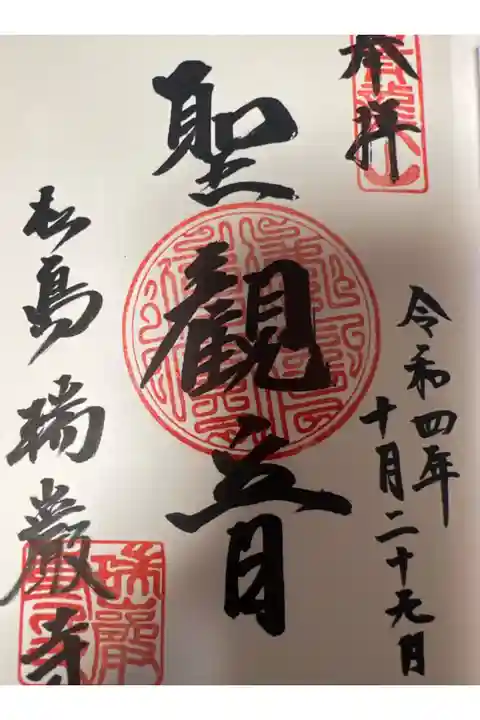 奉拝
令和四年
十月二十九日
聖観音
松島瑞巌寺
瑞巌